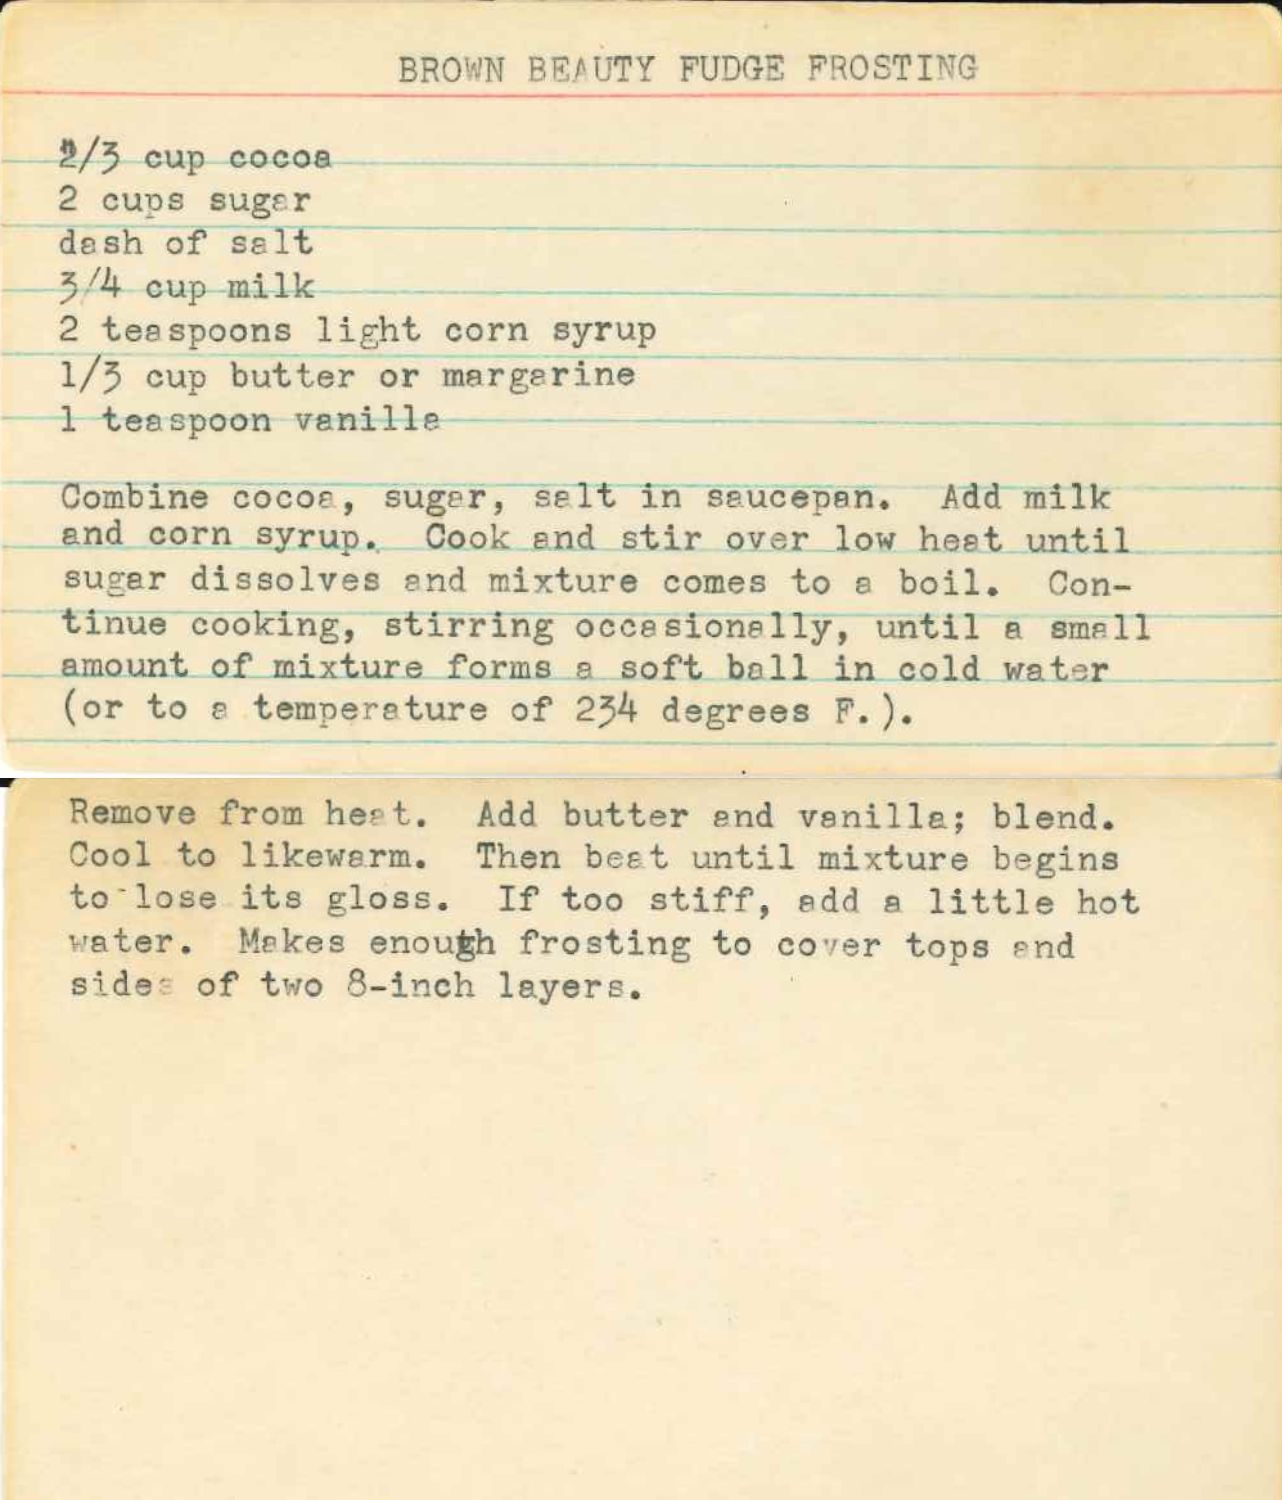 BROWN BEAUTY FUDGE FROSTING
2/3 cup cocoa
2 cups sugar
dash of salt
3/4 cup milk
2 teaspoons light corn syrup
1/3 cup butter or margarine
1 teaspoon vanilla
Combine cocoa, sugar, salt in saucepan. Add milk
and corn syrup. Cook and stir over low heat until
sugar dissolves and mixture comes to a boil. Con-
tinue cooking, stirring occasionally, until a small
amount of mixture forms a soft ball in cold water
(or to a temperature of 234 degrees F.).
Remove from heat. Add butter and vanilla; blend.
Cool to likewarm. Then beat until mixture begins
to lose its gloss. If too stiff, add a little hot
water. Makes enough frosting to cover tops and
sides of two 8-inch layers.